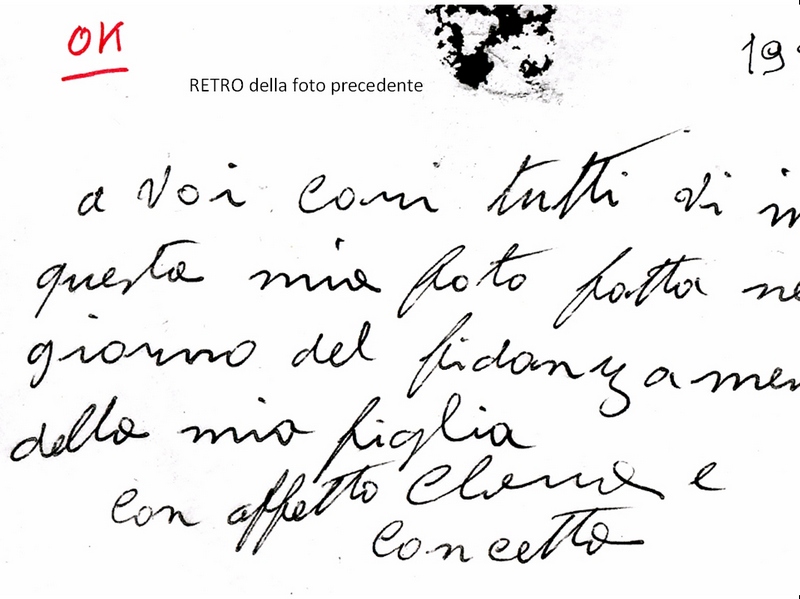 OK
RETRO della foto precedente
19
a voi cari tutti vi in
questa mia foto fatta ne
giorno del fidanzamen
della mia figlia
con affetto e
Concetta